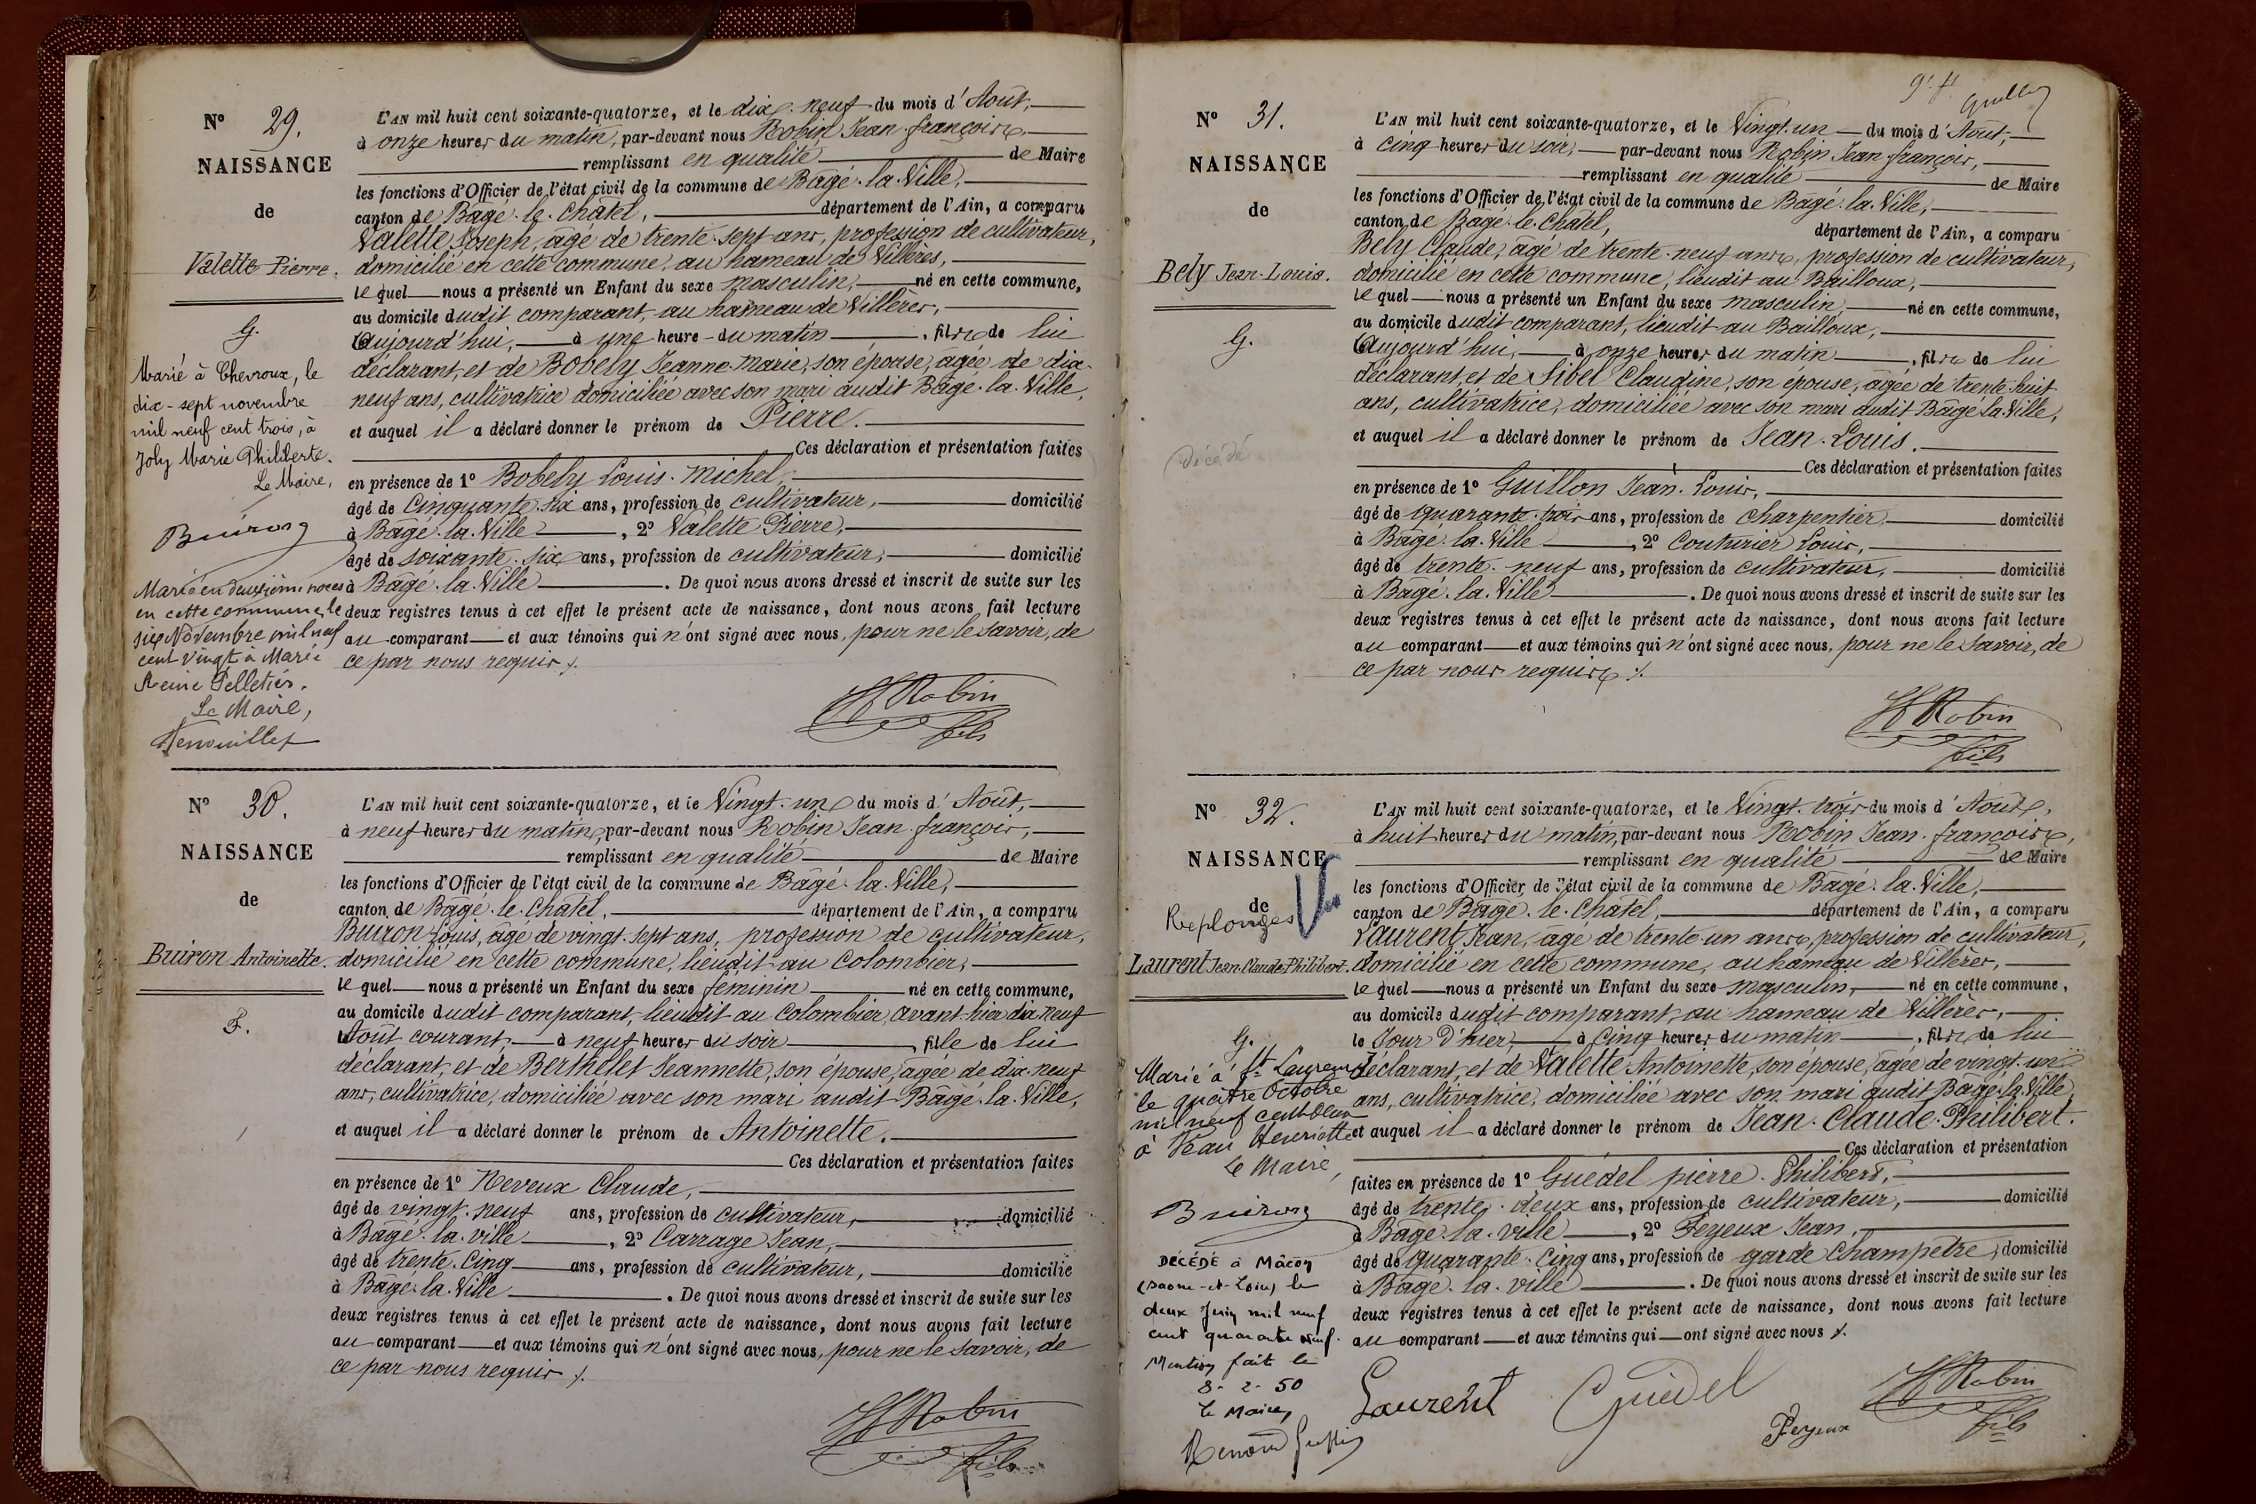 N° 29.
NAISSANCE
de
Valette Pierre.
G.
Marié à Chevroux, le
dix-sept novembre
mil neuf cent trois, à
Joly Marie Philiberte.
Le Maire,
Buiron
Marié en deuxième noces
en cette commune, le
six Novembre mil neuf
cent vingt à Marie
Reine Pelletier.
Le Maire,
L'AN mil huit cent soixante-quatorze, et le dix-neuf du mois d'Août,
à onze heures du matin, par-devant nous Robin Jean-françois,
remplissant en qualité de Maire
les fonctions d'Officier de l'état civil de la commune de Bâgé-la-Ville,
canton de Bâgé-le-Châtel, département de l'Ain, a comparu
Valette Joseph, âgé de trente-sept ans, profession de cultivateur,
domicilié en cette commune, au hameau de Villères,
le quel nous a présenté un Enfant du sexe masculin, né en cette commune,
au domicile dudit comparant, au hameau de Villères,
Aujourd'hui, à une heure du matin, fils de lui
déclarant, et de Bobely Jeanne-Marie, son épouse, âgée de dix-
neuf ans, cultivatrice domiciliée avec son mari audit Bâgé-la-Ville,
et auquel il a déclaré donner le prénom de Pierre.
Ces déclaration et présentation faites
en présence de 1° Bobely Louis-Michel,
âgé de Cinquante-six ans, profession de cultivateur, domicilié
à Bâgé-la-Ville, 2° Valette Pierre,
âgé de soixante-six ans, profession de cultivateur, domicilié
à Bâgé-la-Ville. De quoi nous avons dressé et inscrit de suite sur les
deux registres tenus à cet effet le présent acte de naissance, dont nous avons fait lecture
au comparant et aux témoins qui n'ont signé avec nous, pour ne le savoir, de
ce par nous requis ./.
Robin
fils
N° 30.
NAISSANCE
de
Buiron Antoinette.
F.
L'AN mil huit cent soixante-quatorze, et le Vingt-un du mois d'Août,
à neuf heures du matin, par-devant nous Robin Jean-françois,
remplissant en qualité de Maire
les fonctions d'Officier de l'état civil de la commune de Bâgé-la-Ville,
canton de Bâgé-le-Châtel, département de l'Ain, a comparu
Buiron Louis, âgé de vingt-sept ans, profession de cultivateur,
domicilié en cette commune, lieudit au Colombier,
le quel nous a présenté un Enfant du sexe féminin né en cette commune,
au domicile dudit comparant, lieudit au Colombier, avant-hier dix-neuf
Août courant, à neuf heures du soir, fille de lui
déclarant, et de Berthelet Jeannette, son épouse, âgée de dix-neuf
ans, cultivatrice, domiciliée avec son mari audit Bâgé-la-Ville,
et auquel il a déclaré donner le prénom de Antoinette.
Ces déclaration et présentation faites
en présence de 1° Neveux Claude,
âgé de vingt-neuf ans, profession de cultivateur, domicilié
à Bâgé-la-ville, 2° Carrage Jean,
âgé de trente-cinq ans, profession de cultivateur, domicilié
à Bâgé-la-Ville. De quoi nous avons dressé et inscrit de suite sur les
deux registres tenus à cet effet le présent acte de naissance, dont nous avons fait lecture
au comparant et aux témoins qui n'ont signé avec nous, pour ne le savoir, de
ce par nous requis ./.
Robin
fils
N° 31.
NAISSANCE
de
Bely Jean-Louis.
G.
Décédé
L'AN mil huit cent soixante-quatorze, et le Vingt-un du mois d'Août,
à cinq heures du soir, par-devant nous Robin Jean-françois,
remplissant en qualité de Maire
les fonctions d'Officier de l'état civil de la commune de Bâgé-la-Ville,
canton de Bâgé-le-Châtel, département de l'Ain, a comparu
Bely Claude, âgé de trente-neuf ans, profession de cultivateur,
domicilié en cette commune, lieudit au Bailloux,
le quel nous a présenté un Enfant du sexe masculin né en cette commune,
au domicile dudit comparant, lieudit au Bailloux,
Aujourd'hui, à onze heures du matin, fils de lui
déclarant, et de Sibel Claudine, son épouse, âgée de trente-huit
ans, cultivatrice, domiciliée avec son mari audit Bâgé-la-Ville,
et auquel il a déclaré donner le prénom de Jean-Louis.
Ces déclaration et présentation faites
en présence de 1° Guillon Jean-Louis,
âgé de quarante-trois ans, profession de charpentier, domicilié
à Bâgé-la-Ville, 2° Couturier Louis,
âgé de trente-neuf ans, profession de cultivateur, domicilié
à Bâgé-la-Ville. De quoi nous avons dressé et inscrit de suite sur les
deux registres tenus à cet effet le présent acte de naissance, dont nous avons fait lecture
au comparant et aux témoins qui n'ont signé avec nous, pour ne le savoir, de
ce par nous requis ./.
Robin
fils
N° 32.
NAISSANCE
de
Replonges
Laurent Jean-Claude-Philibert.
G.
Marié à St Laurent
le quatre Octobre
mil neuf cent deux
à Veau Henriette
Le Maire,
Buiron
DÉCÉDÉ à Mâcon
(Saône-et-Loire) le
deux Juin mil neuf
cent quarante neuf.
Mention faite le
8-2-50
Le Maire,
L'AN mil huit cent soixante-quatorze, et le Vingt-trois du mois d'Août,
à huit heures du matin, par-devant nous Robin Jean-françois,
remplissant en qualité de Maire
les fonctions d'Officier de l'état civil de la commune de Bâgé-la-Ville,
canton de Bâgé-le-Châtel, département de l'Ain, a comparu
Laurent Jean, âgé de trente-un ans, profession de cultivateur,
domicilié en cette commune, au hameau de Villères,
le quel nous a présenté un Enfant du sexe masculin, né en cette commune,
au domicile dudit comparant, au hameau de Villères,
le Jour d'hier, à cinq heures du matin, fils de lui
déclarant, et de Valette Antoinette, son épouse, âgée de vingt-un
ans, cultivatrice, domiciliée avec son mari audit Bâgé-la-Ville,
et auquel il a déclaré donner le prénom de Jean-Claude-Philibert.
Ces déclaration et présentation
faites en présence de 1° Guédel pierre-Philibert,
âgé de trente-deux ans, profession de cultivateur, domicilié
à Bâgé-la-ville, 2° Feyeux Jean,
âgé de quarante-cinq ans, profession de garde champêtre, domicilié
à Bâgé-la-ville. De quoi nous avons dressé et inscrit de suite sur les
deux registres tenus à cet effet le présent acte de naissance, dont nous avons fait lecture
au comparant et aux témoins qui ont signé avec nous ./.
Laurent Guédel Feyeux Robin
fils